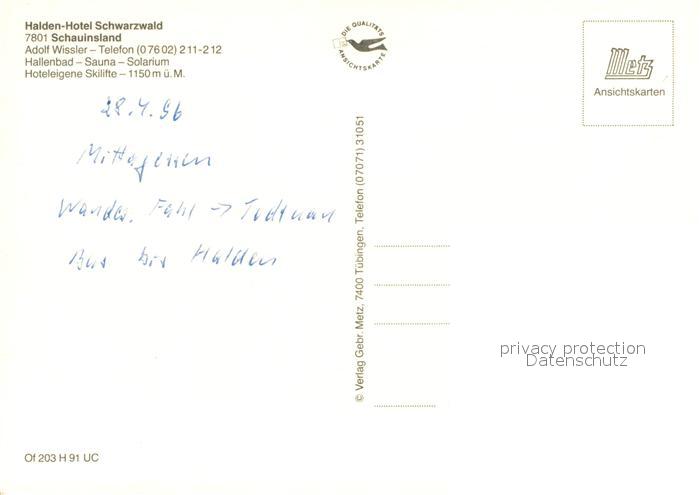 Halden-Hotel Schwarzwald
7801 Schauinsland
Adolf Wissler – Telefon (0 76 02) 2 11-2 12
Hallenbad – Sauna – Solarium
Hoteleigene Skilifte – 1150 m ü. M.
DIE QUALITÄTS
ANSICHTSKARTE
Metz
Ansichtskarten
28.4.96
Mittagessen
Wander. Fahl -> Todtnau
Bus bis Halden
© Verlag Gebr. Metz, 7400 Tübingen, Telefon (07071) 31051
privacy protection
Datenschutz
Of 203 H 91 UC